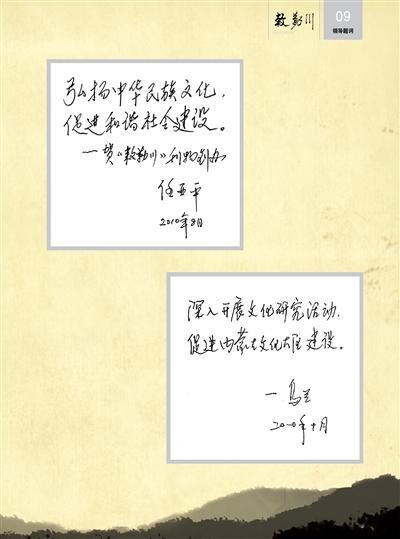 敕勒川
09
领导题词
弘扬中华民族文化，
促进和谐社会建设。
一贺《敕勒川》刊物创办
任亚平
2010年8日
深入开展文化研究活动，
促进内蒙古文化大区建设。
一乌兰
2010年十月